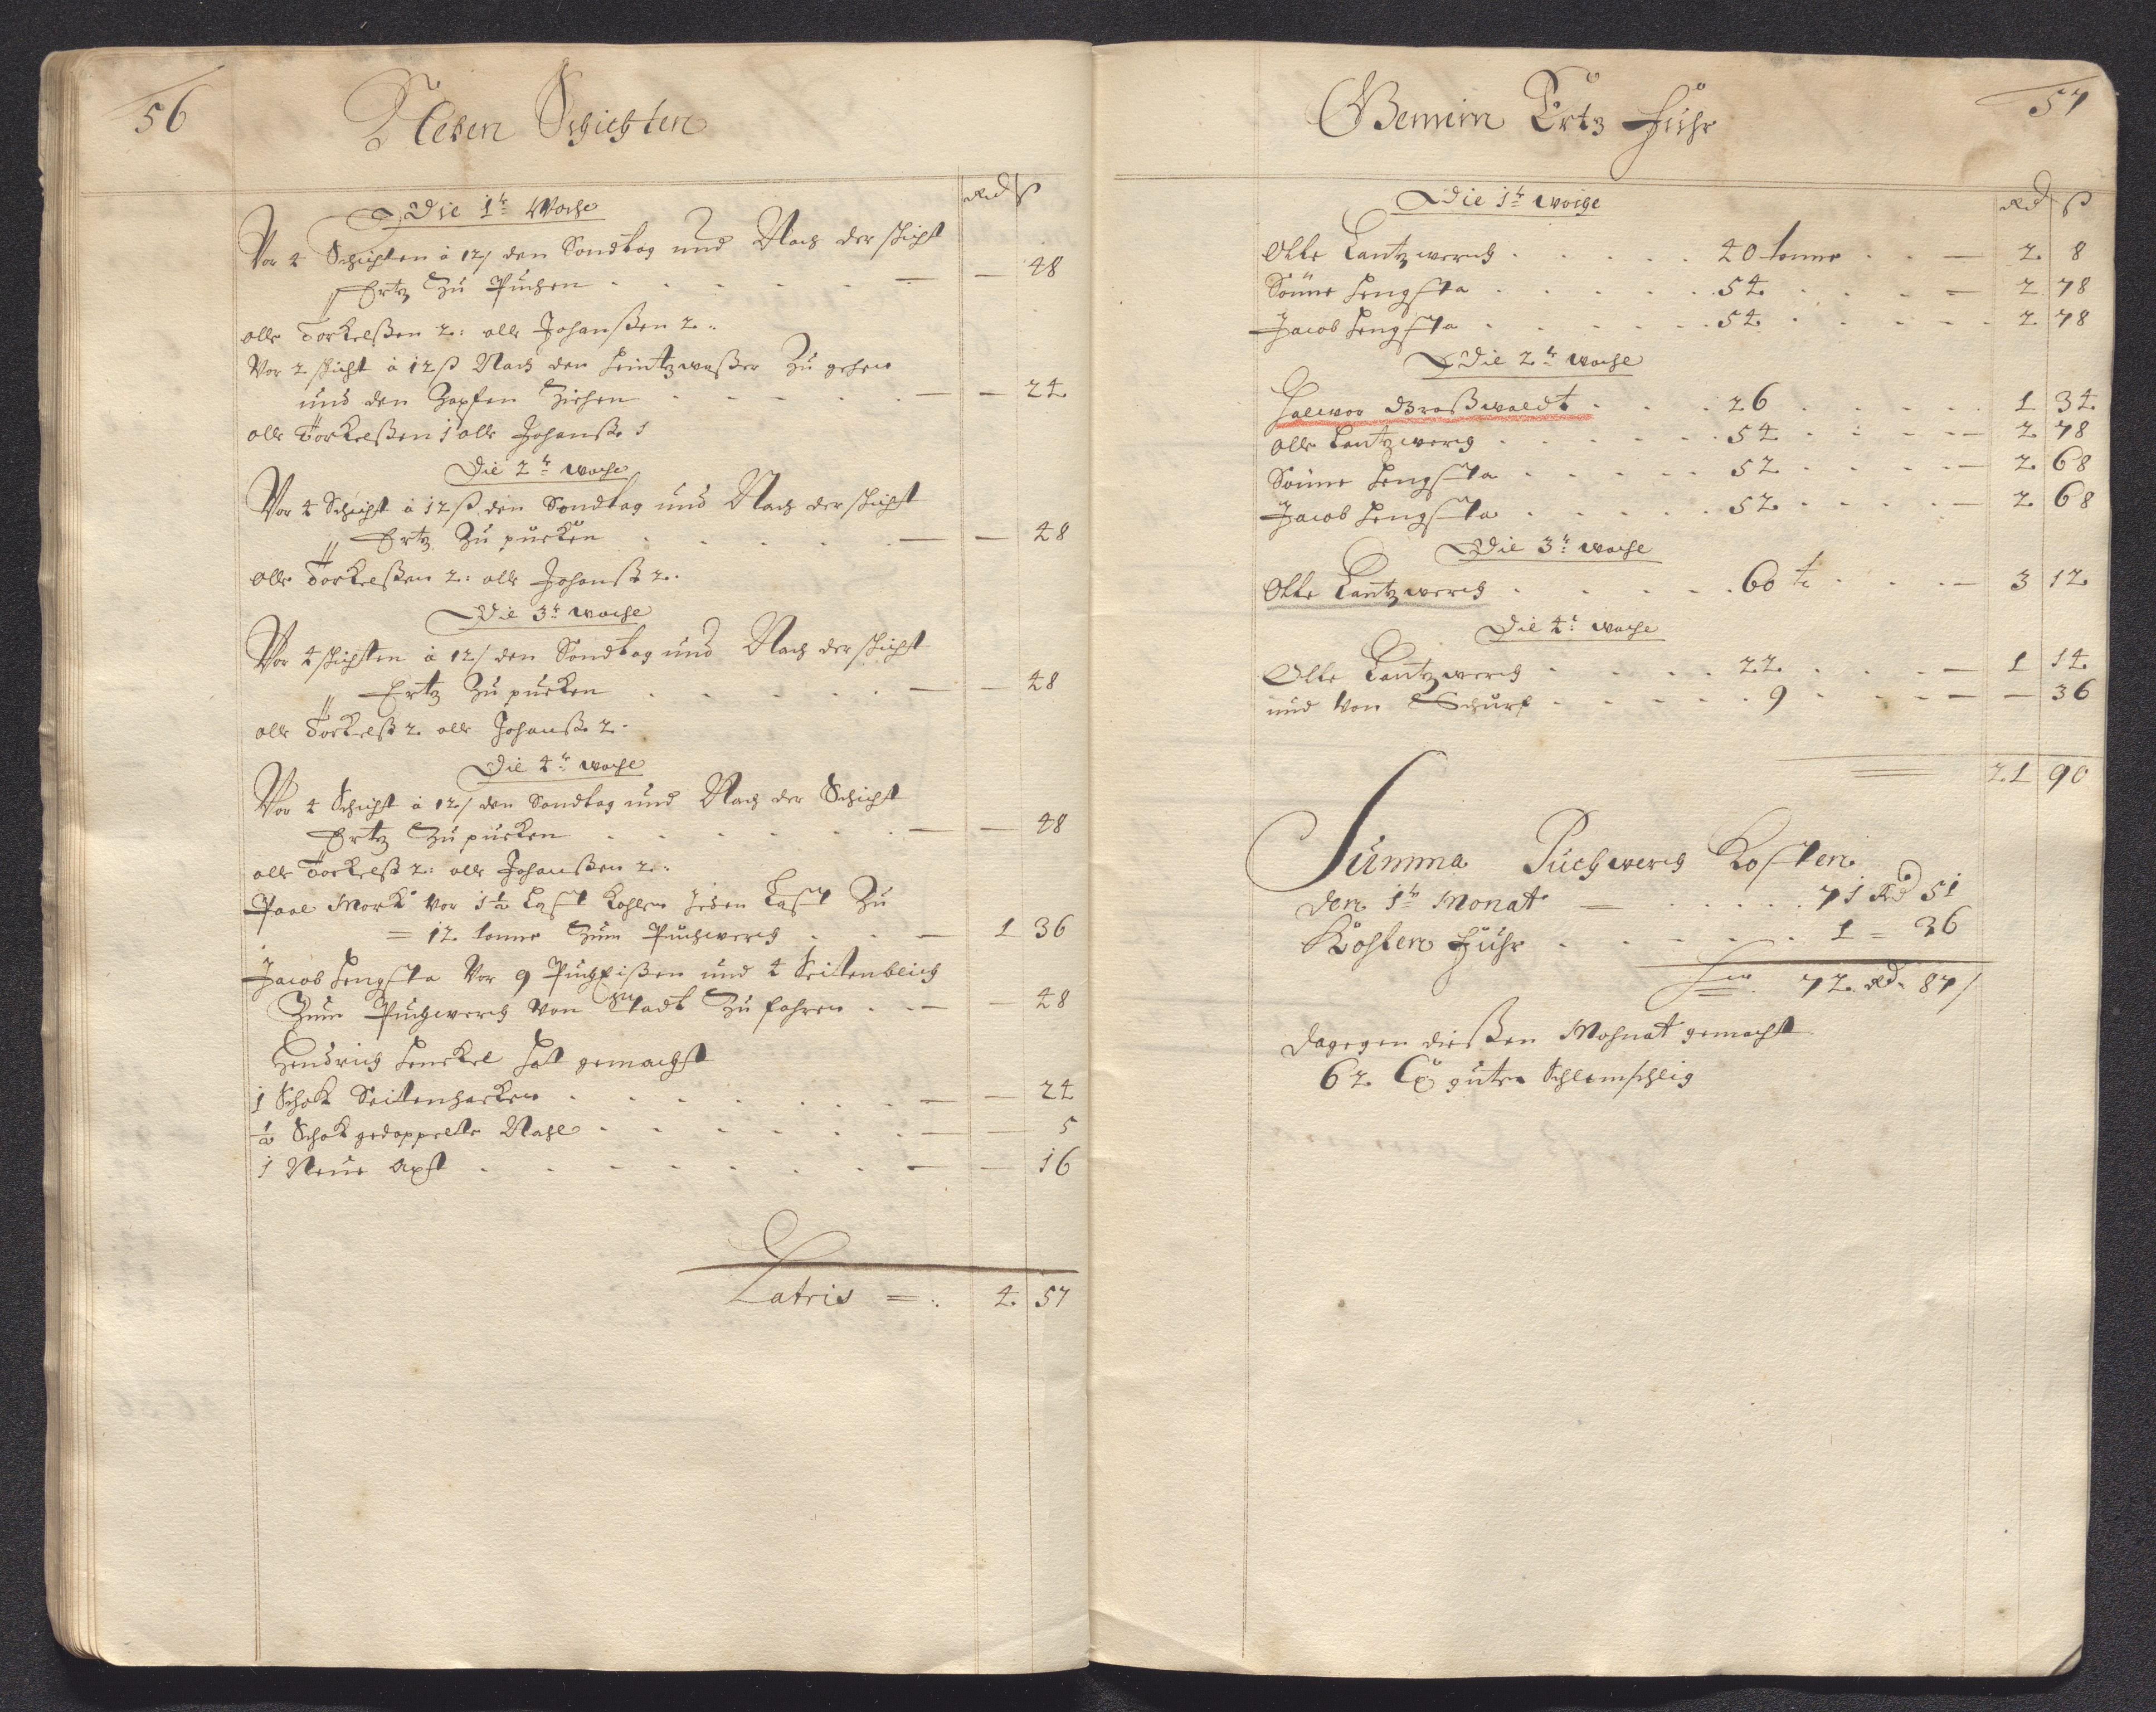 56
Neben Schichten
Rd ß
Die 1te Woche
Vor 4 Schichten à 12/ den Sondtag und Nach der schicht
Ertz Zu Puchen - - 48
olle Torkelßen 2: olle Johanßen 2.
Vor 2 schicht à 12 ß Nach den Haintzwaßer Zu gehen
und den Zapfen Ziehen - - 24
olle Torkelßen 1 olle Johanß 1
Die 2te woche
Vor 4 Schicht à 12 ß den Sondtag und Nach der schicht
Ertz Zu pucken - - 48
olle Torkelßen 2: olle Johanß 2.
Die 3te woche
Vor 4 schichten à 12/ den Sondtag und Nach der schicht
Ertz Zu pucken - - 48
olle Torkelß 2. olle Johanß 2.
Die 4te woche
Vor 4 Schicht à 12/ den Sondtag und Nach der Schicht
Ertz Zu pucken - - 48
olle Torkelß 2: olle Johanßen 2.
Paal Mork Vor 1½ Last Kohlen Jeden Last Zu
= 12 tonne Zum Puchwerch - 1 36
Jacob Lengsta Vor 9 Puchfißen und 4 Seitenblich
Zum Puchwerch Von Stadt Zu fahren - - 48
Hendrich Henckel hat gemachst
1 Schok Seitenhacken - - 24
½ Schok gedoppelte Nagel - - 5
1 Neue Axst - - 16
Latris = 4 57
57
Gemein Ertz Fuhr
Rd ß
Die 1te woche
Olle Lantzwerch 40 tonne - 2 8
Sönne Lengsta 54 - 2 78
Jacob Lengsta 54 - 2 78
Die 2te woche
Halwor Graßwaldt 26 1 34
olle Lantzwerch 54 - 2 78
Sönne Lengsta 52 - 2 68
Jacob Lengsta 52 - 2 68
Die 3te woche
Olle Lantzwerch 60 t. - 3 12
Die 4te woche
Olle Lantzwerch 22 - 1 14
und Von Schurf 9 - - 36
21 90
Summa Puchwerch Kosten
den 1te Monat - 71 Rd 51
Kohlen Fuhr 1 = 36
72 Rd. 87/
dagegen dießen Mohnat gemacht
62 guten Schlemschlig